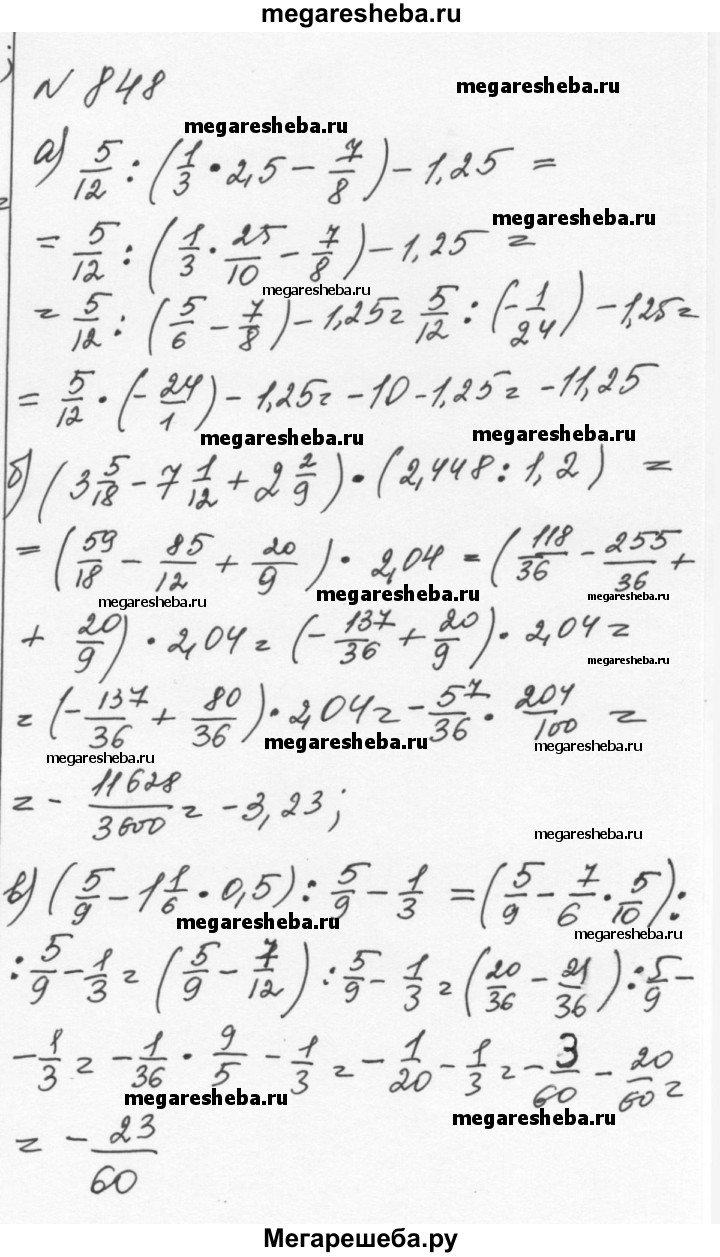 megaresheba.ru
N 848
megaresheba.ru
megaresheba.ru
а) 5/12 : (1/3 · 2,5 − 7/8) − 1,25 =
megaresheba.ru
= 5/12 : (1/3 · 25/10 − 7/8) − 1,25 =
megaresheba.ru
= 5/12 : (5/6 − 7/8) − 1,25 = 5/12 : (−1/24) − 1,25 =
= 5/12 · (−24/1) − 1,25 = −10 − 1,25 = −11,25
megaresheba.ru
megaresheba.ru
б) (3 5/18 − 7 1/12 + 2 2/9) · (2,448 : 1,2) =
= (59/18 − 85/12 + 20/9) · 2,04 = (118/36 − 255/36 +
megaresheba.ru
megaresheba.ru
megaresheba.ru
+ 20/9) · 2,04 = (−137/36 + 20/9) · 2,04 =
megaresheba.ru
= (−137/36 + 80/36) · 2,04 = −57/36 · 204/100 =
megaresheba.ru
megaresheba.ru
= − 11628/3600 = −3,23;
megaresheba.ru
в) (5/9 − 1 1/6 · 0,5) : 5/9 − 1/3 = (5/9 − 7/6 · 5/10) :
megaresheba.ru
megaresheba.ru
: 5/9 − 1/3 = (5/9 − 7/12) : 5/9 − 1/3 = (20/36 − 21/36) : 5/9 −
− 1/3 = −1/36 · 9/5 − 1/3 = −1/20 − 1/3 = −3/60 − 20/60 =
megaresheba.ru
megaresheba.ru
= − 23/60
Мегарешеба.ру